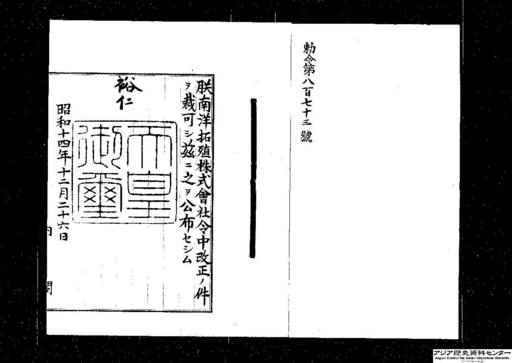 勅令第八百七十三號
朕南洋拓殖株式會社令中改正ノ件
ヲ裁可シ茲ニ之ヲ公布セシム
裕仁
天皇
御璽
昭和十四年十二月二十六日
内閣
アジア歴史資料センター
Japan Center for Asian Historical Records